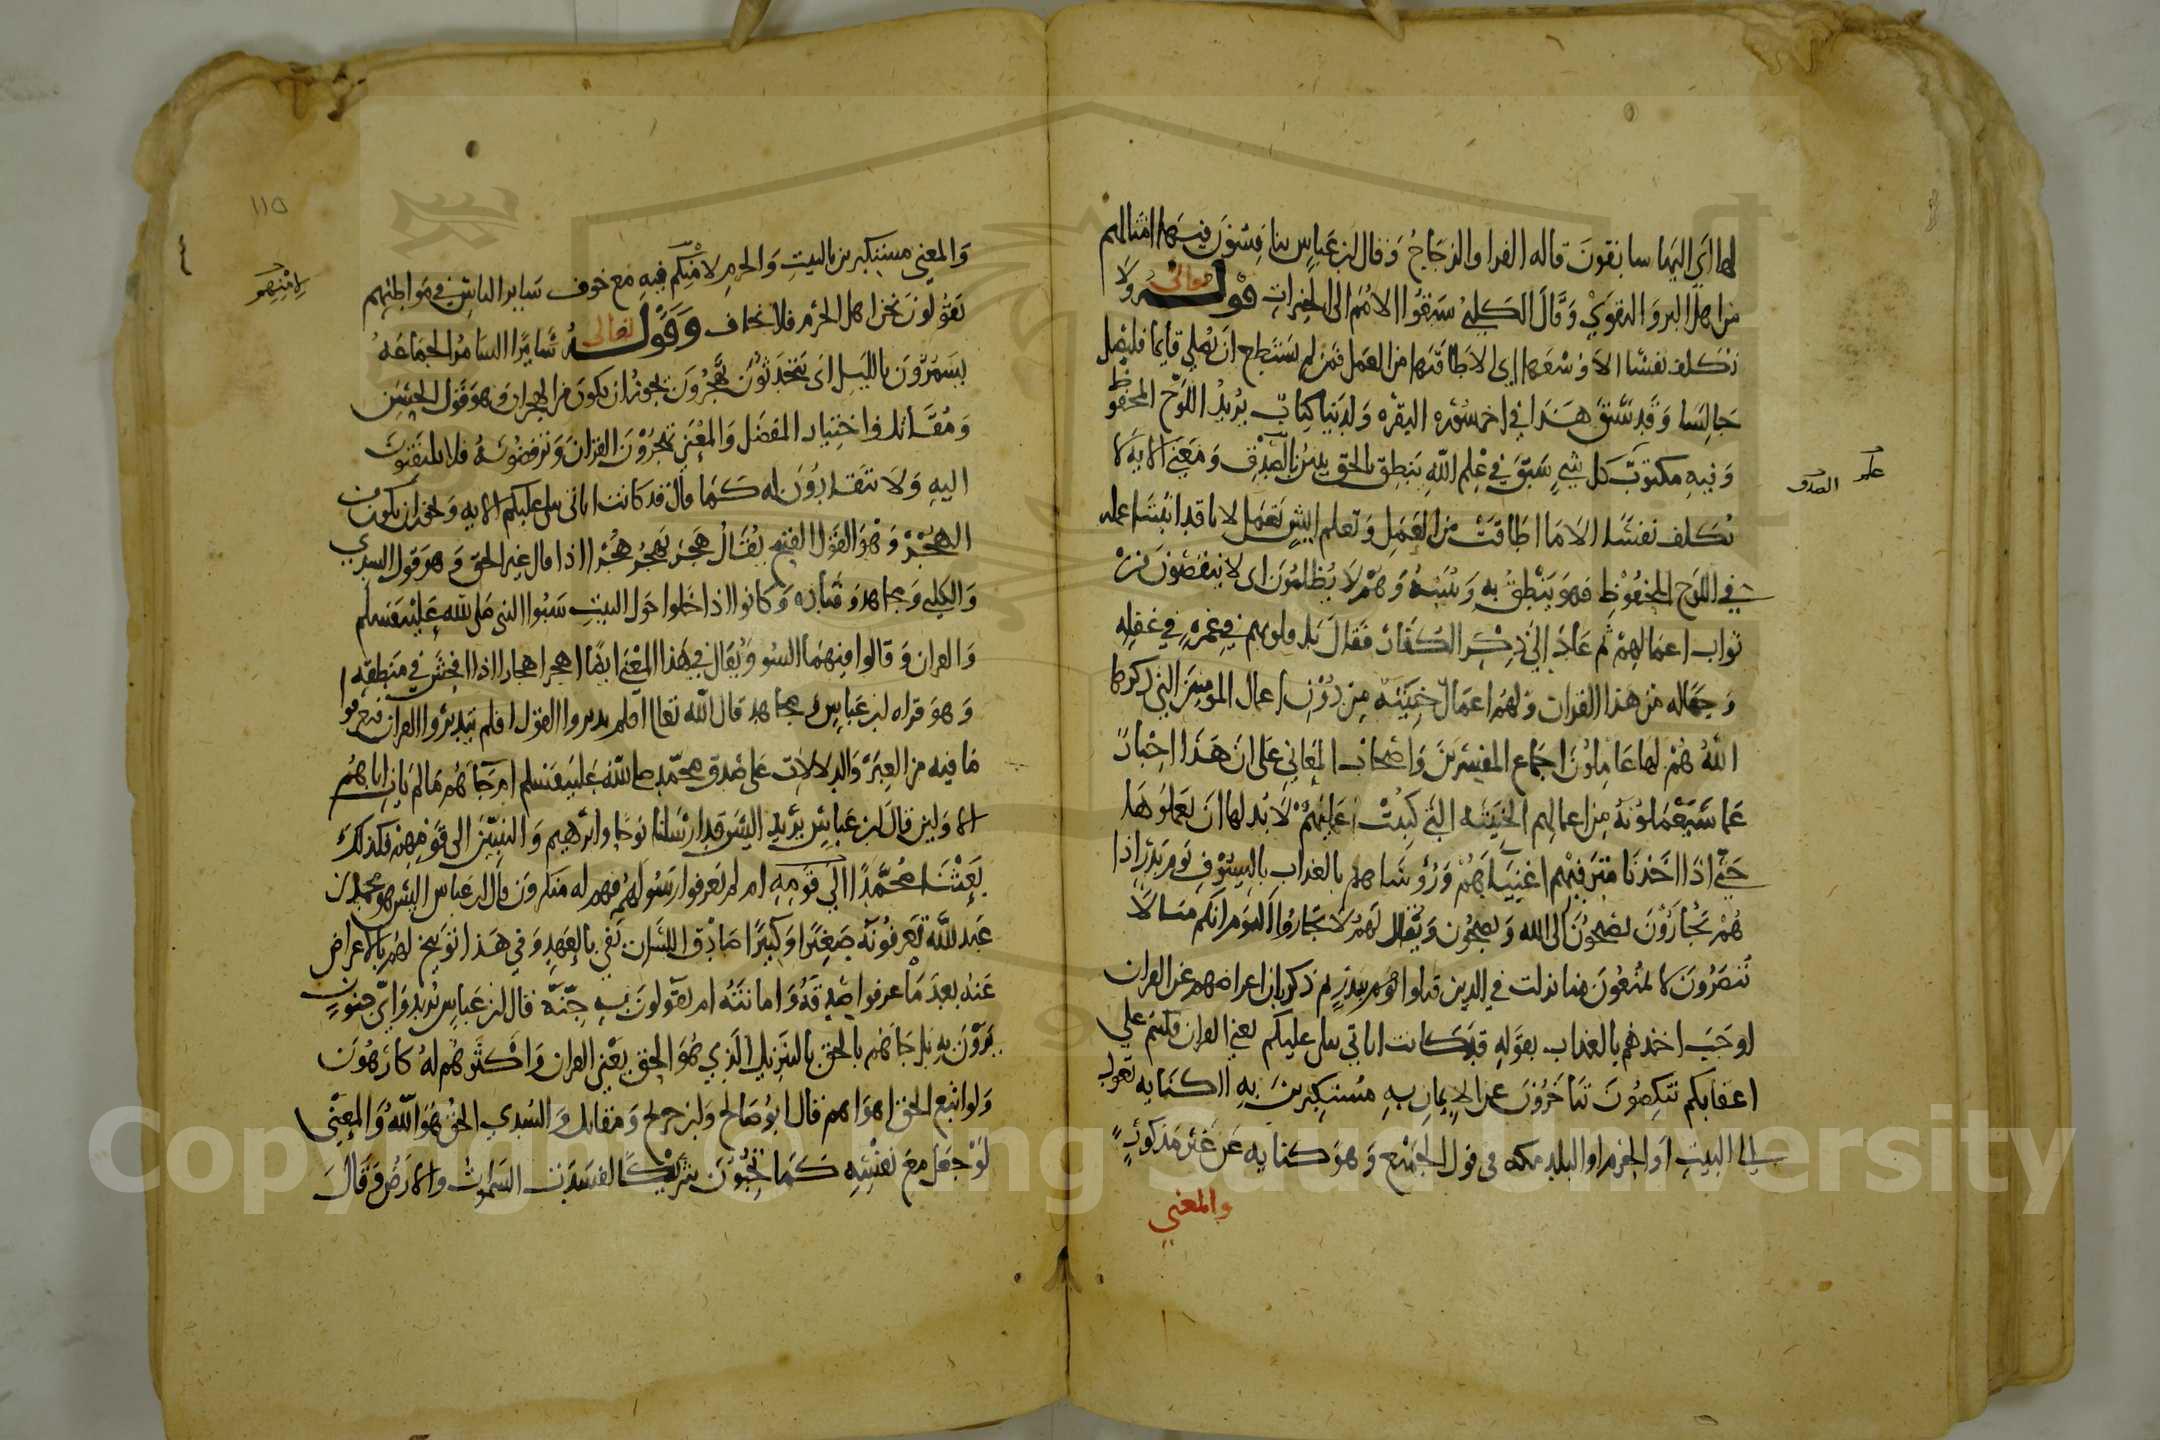 لها اي اليها سابقون قاله الفرا والزجاج وقال ابن عباس ينافسون فيها امثالهم
من اهل البر والتقوي وقال الكلبي سبقوا الامم الى الخيرات قوله تعالى ولا
نكلف نفسا الا وسعها اي الا طاقتها من العمل فمن لم يستطع ان يصلي قايما فليصل
جالسا وقد سبق هذا في اخر سوره البقره ولدينا كتاب يريد اللوح المحفوظ
وفيه مكتوب كل شي سبق في علم الله ينطق بالحق يبين بالصدق ومعنى الايه لا
نكلف نفسا الا ما اطاقت من العمل ونعلم ايش تعمل لانا قد اثبتنا عمله
في اللوح المحفوظ فهو ينطق به ويبينه وهم لا يظلمون اي لا ينقصون من
ثواب اعمالهم ثم عاد الى ذكر الكفار فقال بل قلوبهم في غمره في غفله
وجهاله من هذا القران ولهم اعمال خبيثه من دون اعمال المومنين التي ذكرها
الله هم لها عاملون اجماع المفسرين واصحاب المعاني على ان هذا اخبار
عما سيعملونه من اعمالهم الخبيثه التي كتبت عليهم لا بد لها ان يعملوها
حتي اذا اخذنا مترفيهم اغنياهم ورؤساهم بالعذاب بالسيوف يوم بدر اذا
هم يجارون يضجون الى الله ويصيحون ويقال لهم لا تجاروا اليوم انكم منا لا
تنصرون لا تمنعون منا نزلت في الدين قتلوا يوم بدر ثم ذكر ان اعراضهم عن القران
اوجب اخذهم بالعذاب بقوله قد كانت اياتي تتلى عليكم يعني القران فكنتم علي
اعقابكم تنكصون تتاخرون عن الايمان به مستكبرين به الكنايه تعود
الى البيت او الحرم او البلد مكه في قول الجميع وهو كنايه عن غير مذكور
والمعني
علم الصدق
١١٥
والمعني مستكبرين بالبيت والحرم لامنكم فيه مع خوف ساير الناس في مواطنهم
لامنهم
تقولون نحن اهل الحرم فلا نخاف وقوله تعالى سامرا السامر الجماعه
يسمرون بالليل اي يتحدثون تهجرون يجوز ان يكون من الهجران وهو قول الحسن
ومقاتل واختيار المفضل والمعني تهجرون القران وترفضونه فلا تلتفتون
اليه ولا تنقادون له كما قال قد كانت اياتي تتلى عليكم الايه ويجوز ان يكون من
الهجر وهو القول القبيح يقال هجر يهجر هجرا اذا قال غير الحق وهو قول السدي
والكلبي ومجاهد وقتاده وكانوا اذا خلوا حول البيت سبوا النبي صلى الله عليه وسلم
والقران وقالوا فيهما السوء ويقال في هذا المعنى ايضا اهجر اهجارا اذا افحش في منطقه
وهو قراه ابن عباس ومجاهد قال الله تعالى افلم يدبروا القول افلم يتدبروا القران فيعرفوا
ما فيه من العبر والدلالات على صدق محمد صلى الله عليه وسلم ام جاهم ما لم يات اباهم
الاولين قال ابن عباس يريد اليس قد ارسلنا نوحا وابرهيم والنبيين الى قومهم فكذلك
بعثنا محمدا الي قومه ام لم يعرفوا رسولهم فهم له منكرون قال ابن عباس اليس هو محمد بن
عبد الله تعرفونه صغيرا وكبيرا صادق اللسان يفي بالعهد وفي هذا توبيخ لهم بالاعراض
عنه بعد ما عرفوا صدقه وامانته ام يقولون به جنه قال ابن عباس يريد واي جنون
يرون به بل جاهم بالحق بالتنزيل الذي هو الحق يعني القران واكثرهم له كارهون
ولو اتبع الحق اهواهم قال ابو صالح وابن جريج ومقاتل والسدي الحق هو الله والمعني
لو جعل مع نفسه كما تحبون شريكا لفسدت السموات والارض وقال
Copyright © King Saud University